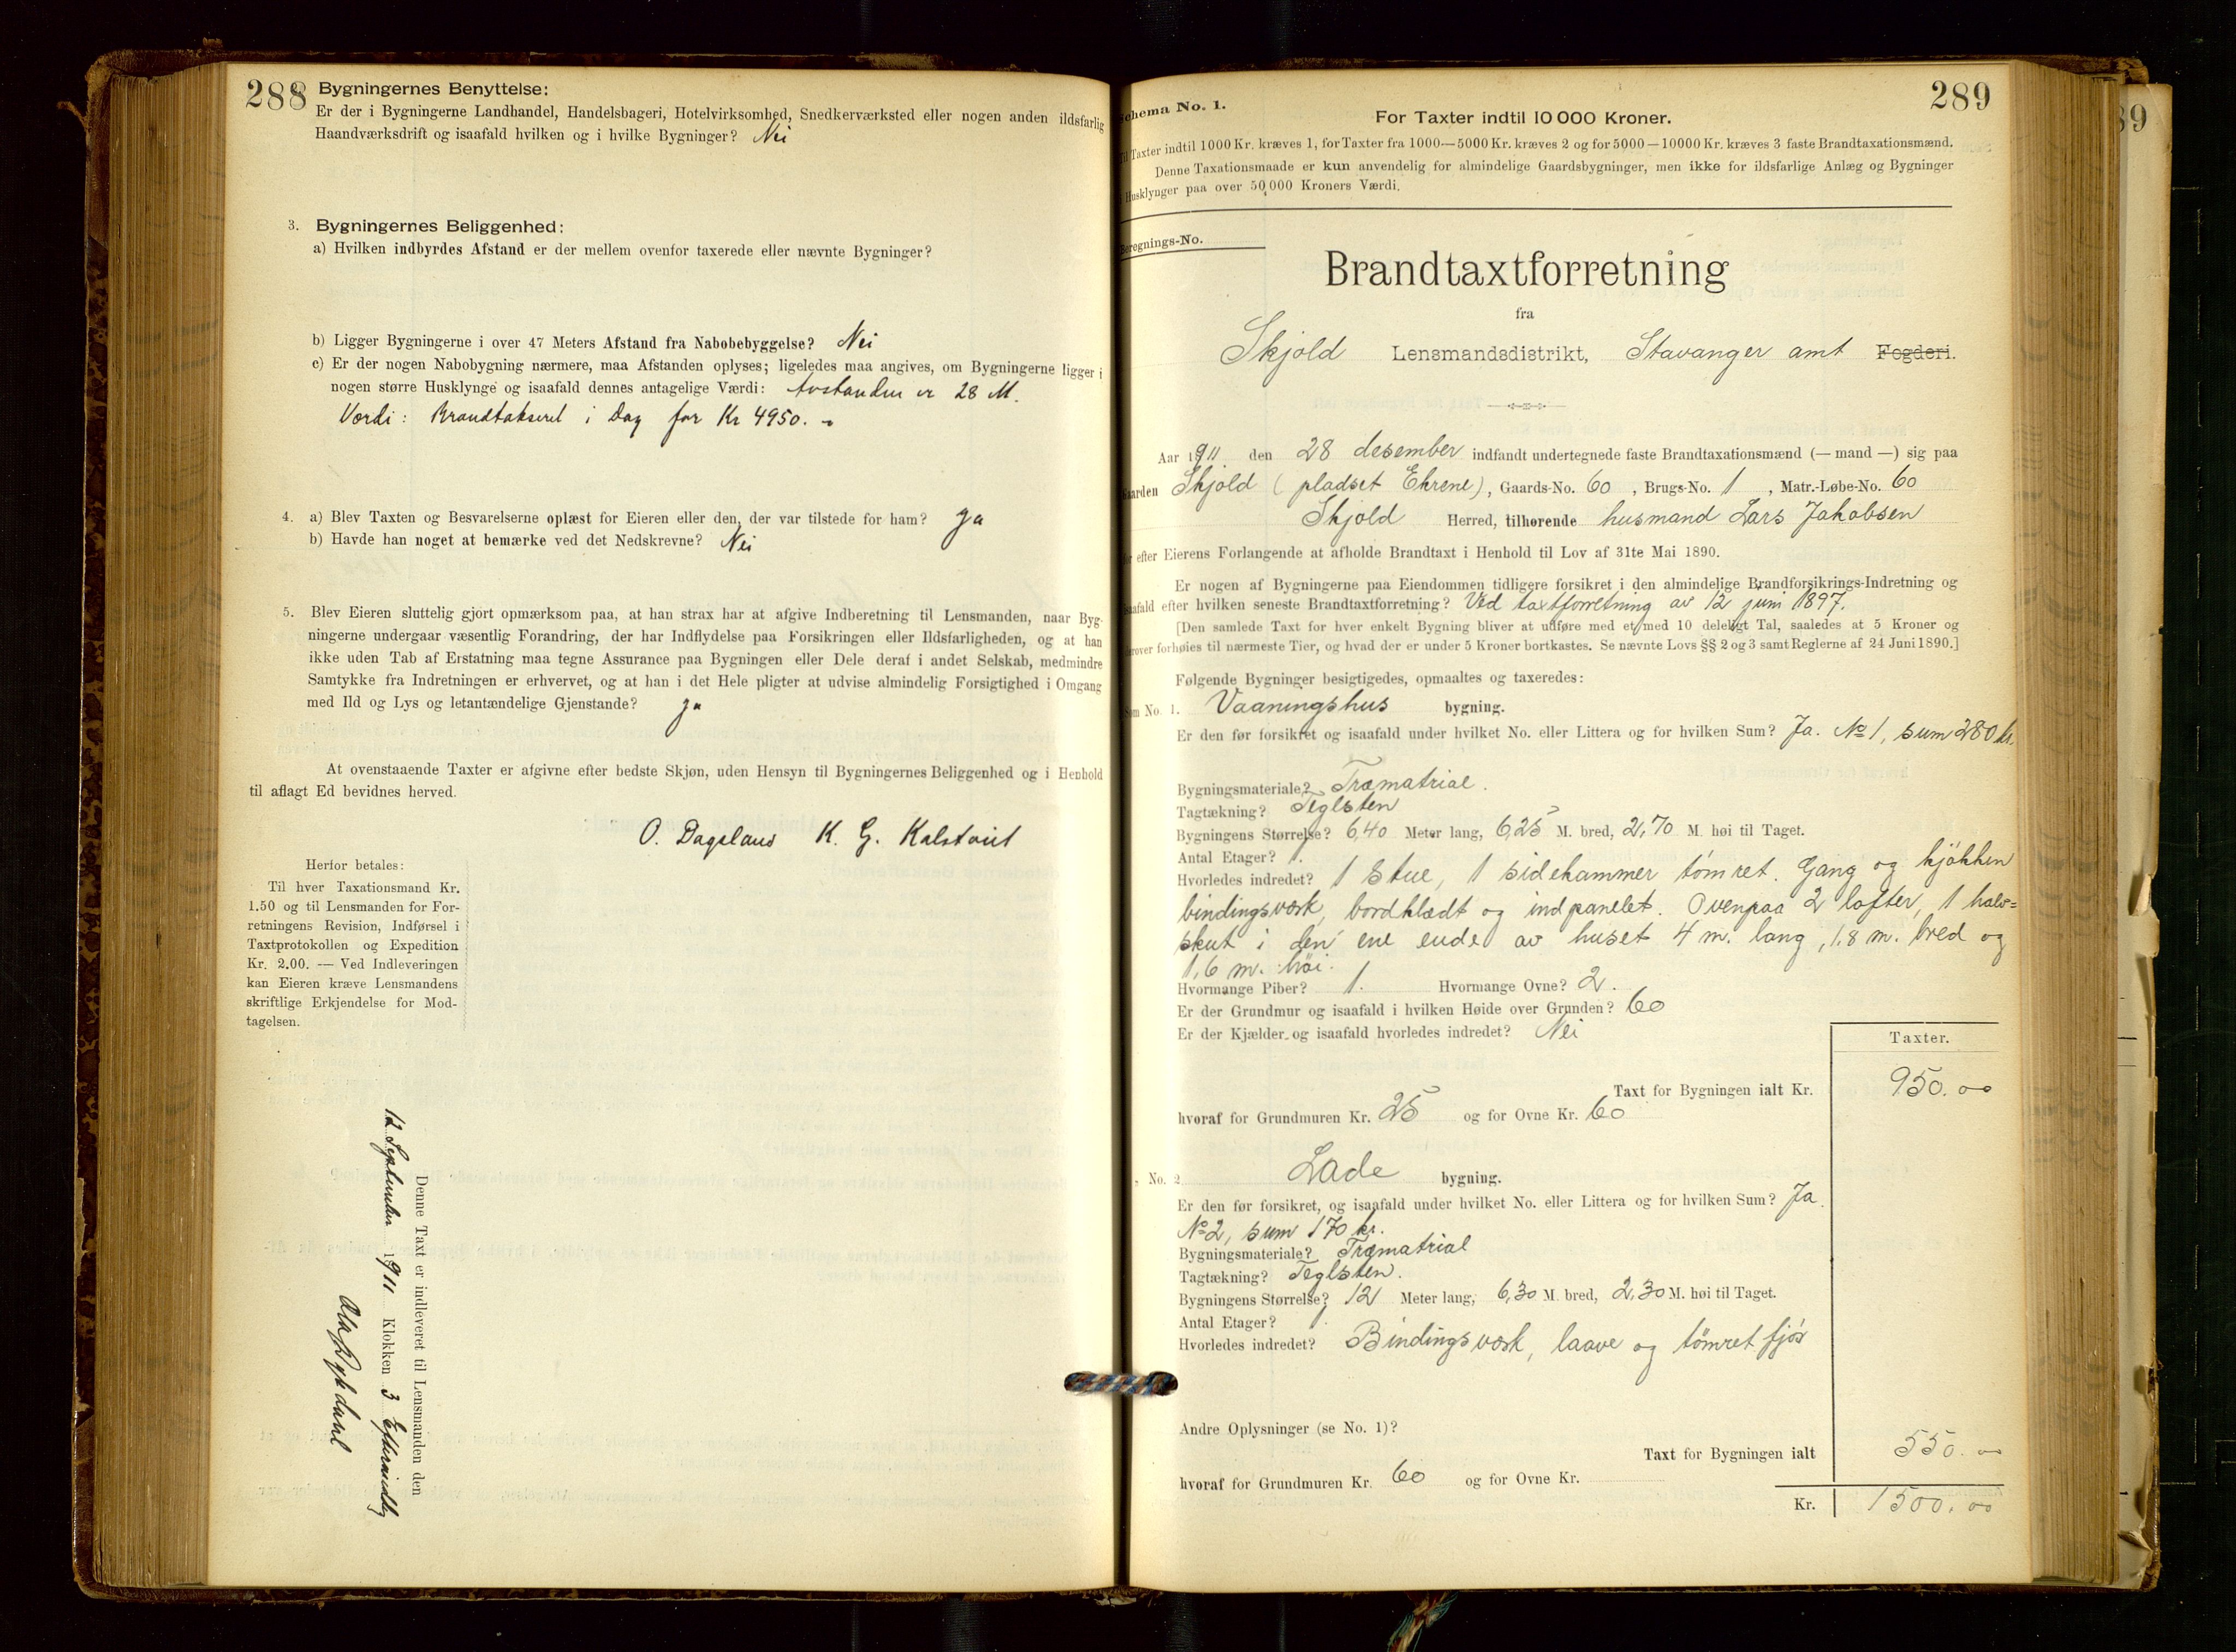 288
Bygningernes Benyttelse:
Er der i Bygningerne Landhandel, Handelsbageri, Hotelvirksomhed, Snedkerværksted eller nogen anden ildsfarlig
Haandværksdrift og isaafald hvilken og i hvilke Bygninger? Nei
3. Bygningernes Beliggenhed:
a) Hvilken indbyrdes Afstand er der mellem ovenfor taxerede eller nævnte Bygninger?
b) Ligger Bygningerne i over 47 Meters Afstand fra Nabobebyggelse? Nei
c) Er der nogen Nabobygning nærmere, maa Afstanden oplyses; ligeledes maa angives, om Bygningerne ligger i
nogen større Husklynge og isaafald dennes antagelige Værdi: Avstanden er 28 M.
Værdi: Brandtakseret i Dag for Kr 4950. -
4. a) Blev Taxten og Besvarelserne oplæst for Eieren eller den, der var tilstede for ham? Ja
b) Havde han noget at bemærke ved det Nedskrevne? Nei
5. Blev Eieren sluttelig gjort opmærksom paa, at han strax har at afgive Indberetning til Lensmanden, naar Byg-
ningerne undergaar væsentlig Forandring, der har Indflydelse paa Forsikringen eller Ildsfarligheden, og at han
ikke uden Tab af Erstatning maa tegne Assurance paa Bygningen eller Dele deraf i andet Selskab, medmindre
Samtykke fra Indretningen er erhvervet, og at han i det Hele pligter at udvise almindelig Forsigtighed i Omgang
med Ild og Lys og letantændelige Gjenstande? Ja
At ovenstaaende Taxter er afgivne efter bedste Skjøn, uden Hensyn til Bygningernes Beliggenhed og i Henhold
til aflagt Ed bevidnes herved.
O. Dagsland K. G. Kalstveit
Herfor betales:
Til hver Taxationsmand Kr.
1.50 og til Lensmanden for For-
retningens Revision, Indførsel i
Taxtprotokollen og Expedition
Kr. 2.00. — Ved Indleveringen
kan Eieren kræve Lensmandens
skriftlige Erkjendelse for Mod-
tagelsen.
Denne Taxt er indleveret til Lensmanden den
12 September 1911 Klokken 3 Eftermiddag
289
Schema No. 1.
For Taxter indtil 10 000 Kroner.
Til Taxter indtil 1000 Kr. kræves 1, for Taxter fra 1000—5000 Kr. kræves 2 og for 5000—10000 Kr. kræves 3 faste Brandtaxationsmænd.
Denne Taxationsmaade er kun anvendelig for almindelige Gaardsbygninger, men ikke for ildsfarlige Anlæg og Bygninger
i Husklynger paa over 50,000 Kroners Værdi.
Beregnings-No.
Brandtaxtforretning
fra
Skjold Lensmandsdistrikt, Stavanger amt Fogderi.
Aar 1911 den 28 desember indfandt undertegnede faste Brandtaxationsmænd (— mand —) sig paa
Gaarden Skjold (pladset Ekrene), Gaards-No. 60, Brugs-No. 1, Matr.-Løbe-No. 60
Skjold Herred, tilhørende husmand Lars Jakobsen
for efter Eierens Forlangende at afholde Brandtaxt i Henhold til Lov af 31te Mai 1890.
Er nogen af Bygningerne paa Eiendommen tidligere forsikret i den almindelige Brandforsikrings-Indretning og
isaafald efter hvilken seneste Brandtaxtforretning? Ved taxtforretning av 12 juni 1897.
[Den samlede Taxt for hver enkelt Bygning bliver at udføre med et med 10 deleligt Tal, saaledes at 5 Kroner og
derover forhøies til nærmeste Tier, og hvad der er under 5 Kroner bortkastes. Se nævnte Lovs §§ 2 og 3 samt Reglerne af 24 Juni 1890.]
Følgende Bygninger besigtigedes, opmaaltes og taxeredes:
Som No. 1. Vaaningshus bygning.
Er den før forsikret og isaafald under hvilket No. eller Littera og for hvilken Sum? Ja. No 1, sum 280 kr.
Bygningsmateriale? Træmatrial.
Tagtækning? Teglsten
Bygningens Størrelse? 6,40 Meter lang, 6,25 M. bred, 2,70 M. høi til Taget.
Antal Etager? 1.
Hvorledes indredet? 1 stue, 1 sidekammer tømret. Gang og kjøkken
bindingsværk, bordklædt og indpanelet. Ovenpaa 2 lofter, 1 halv=
skut i den ene ende av huset 4 m. lang, 1,8 m. bred og
1,6 m. høi.
Hvormange Piber? 1. Hvormange Ovne? 2.
Er der Grundmur og isaafald i hvilken Høide over Grunden? 60
Er der Kjælder og isaafald hvorledes indredet? Nei
Taxter.
Taxt for Bygningen ialt Kr. 950.00
hvoraf for Grundmuren Kr. 25 og for Ovne Kr. 60
„ No. 2 Lade bygning.
Er den før forsikret, og isaafald under hvilket No. eller Littera og for hvilken Sum? Ja.
No 2, sum 170 kr.
Bygningsmateriale? Træmatrial
Tagtækning? Teglsten.
Bygningens Størrelse? 12 Meter lang, 6,30 M. bred, 2,30 M. høi til Taget.
Antal Etager? 1.
Hvorledes indredet? Bindingsværk, laave og tömret fjös
Andre Oplysninger (se No. 1)?
Taxt for Bygningen ialt 550.00
hvoraf for Grundmuren Kr. 60 og for Ovne Kr.
Kr. 1500.00